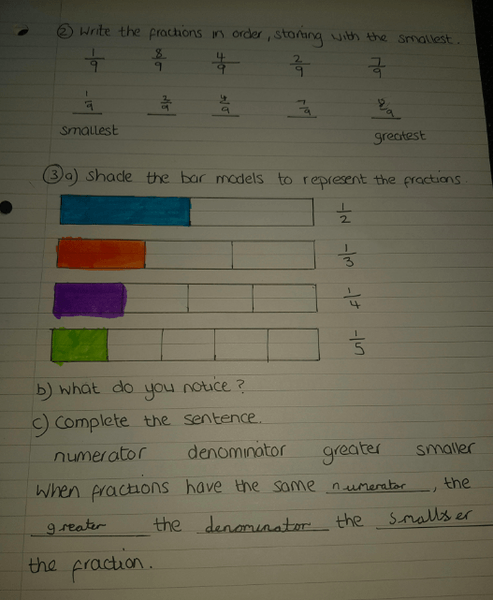 ② Write the fractions in order, starting with the smallest.
1/9 8/9 4/9 2/9 7/9
1/9 2/9 4/9 7/9 8/9
smallest greatest
③ a) Shade the bar models to represent the fractions
1/2
1/3
1/4
1/5
b) What do you notice?
c) Complete the sentence.
numerator denominator greater smaller
When fractions have the same numerator, the
greater the denominator the smaller
the fraction.